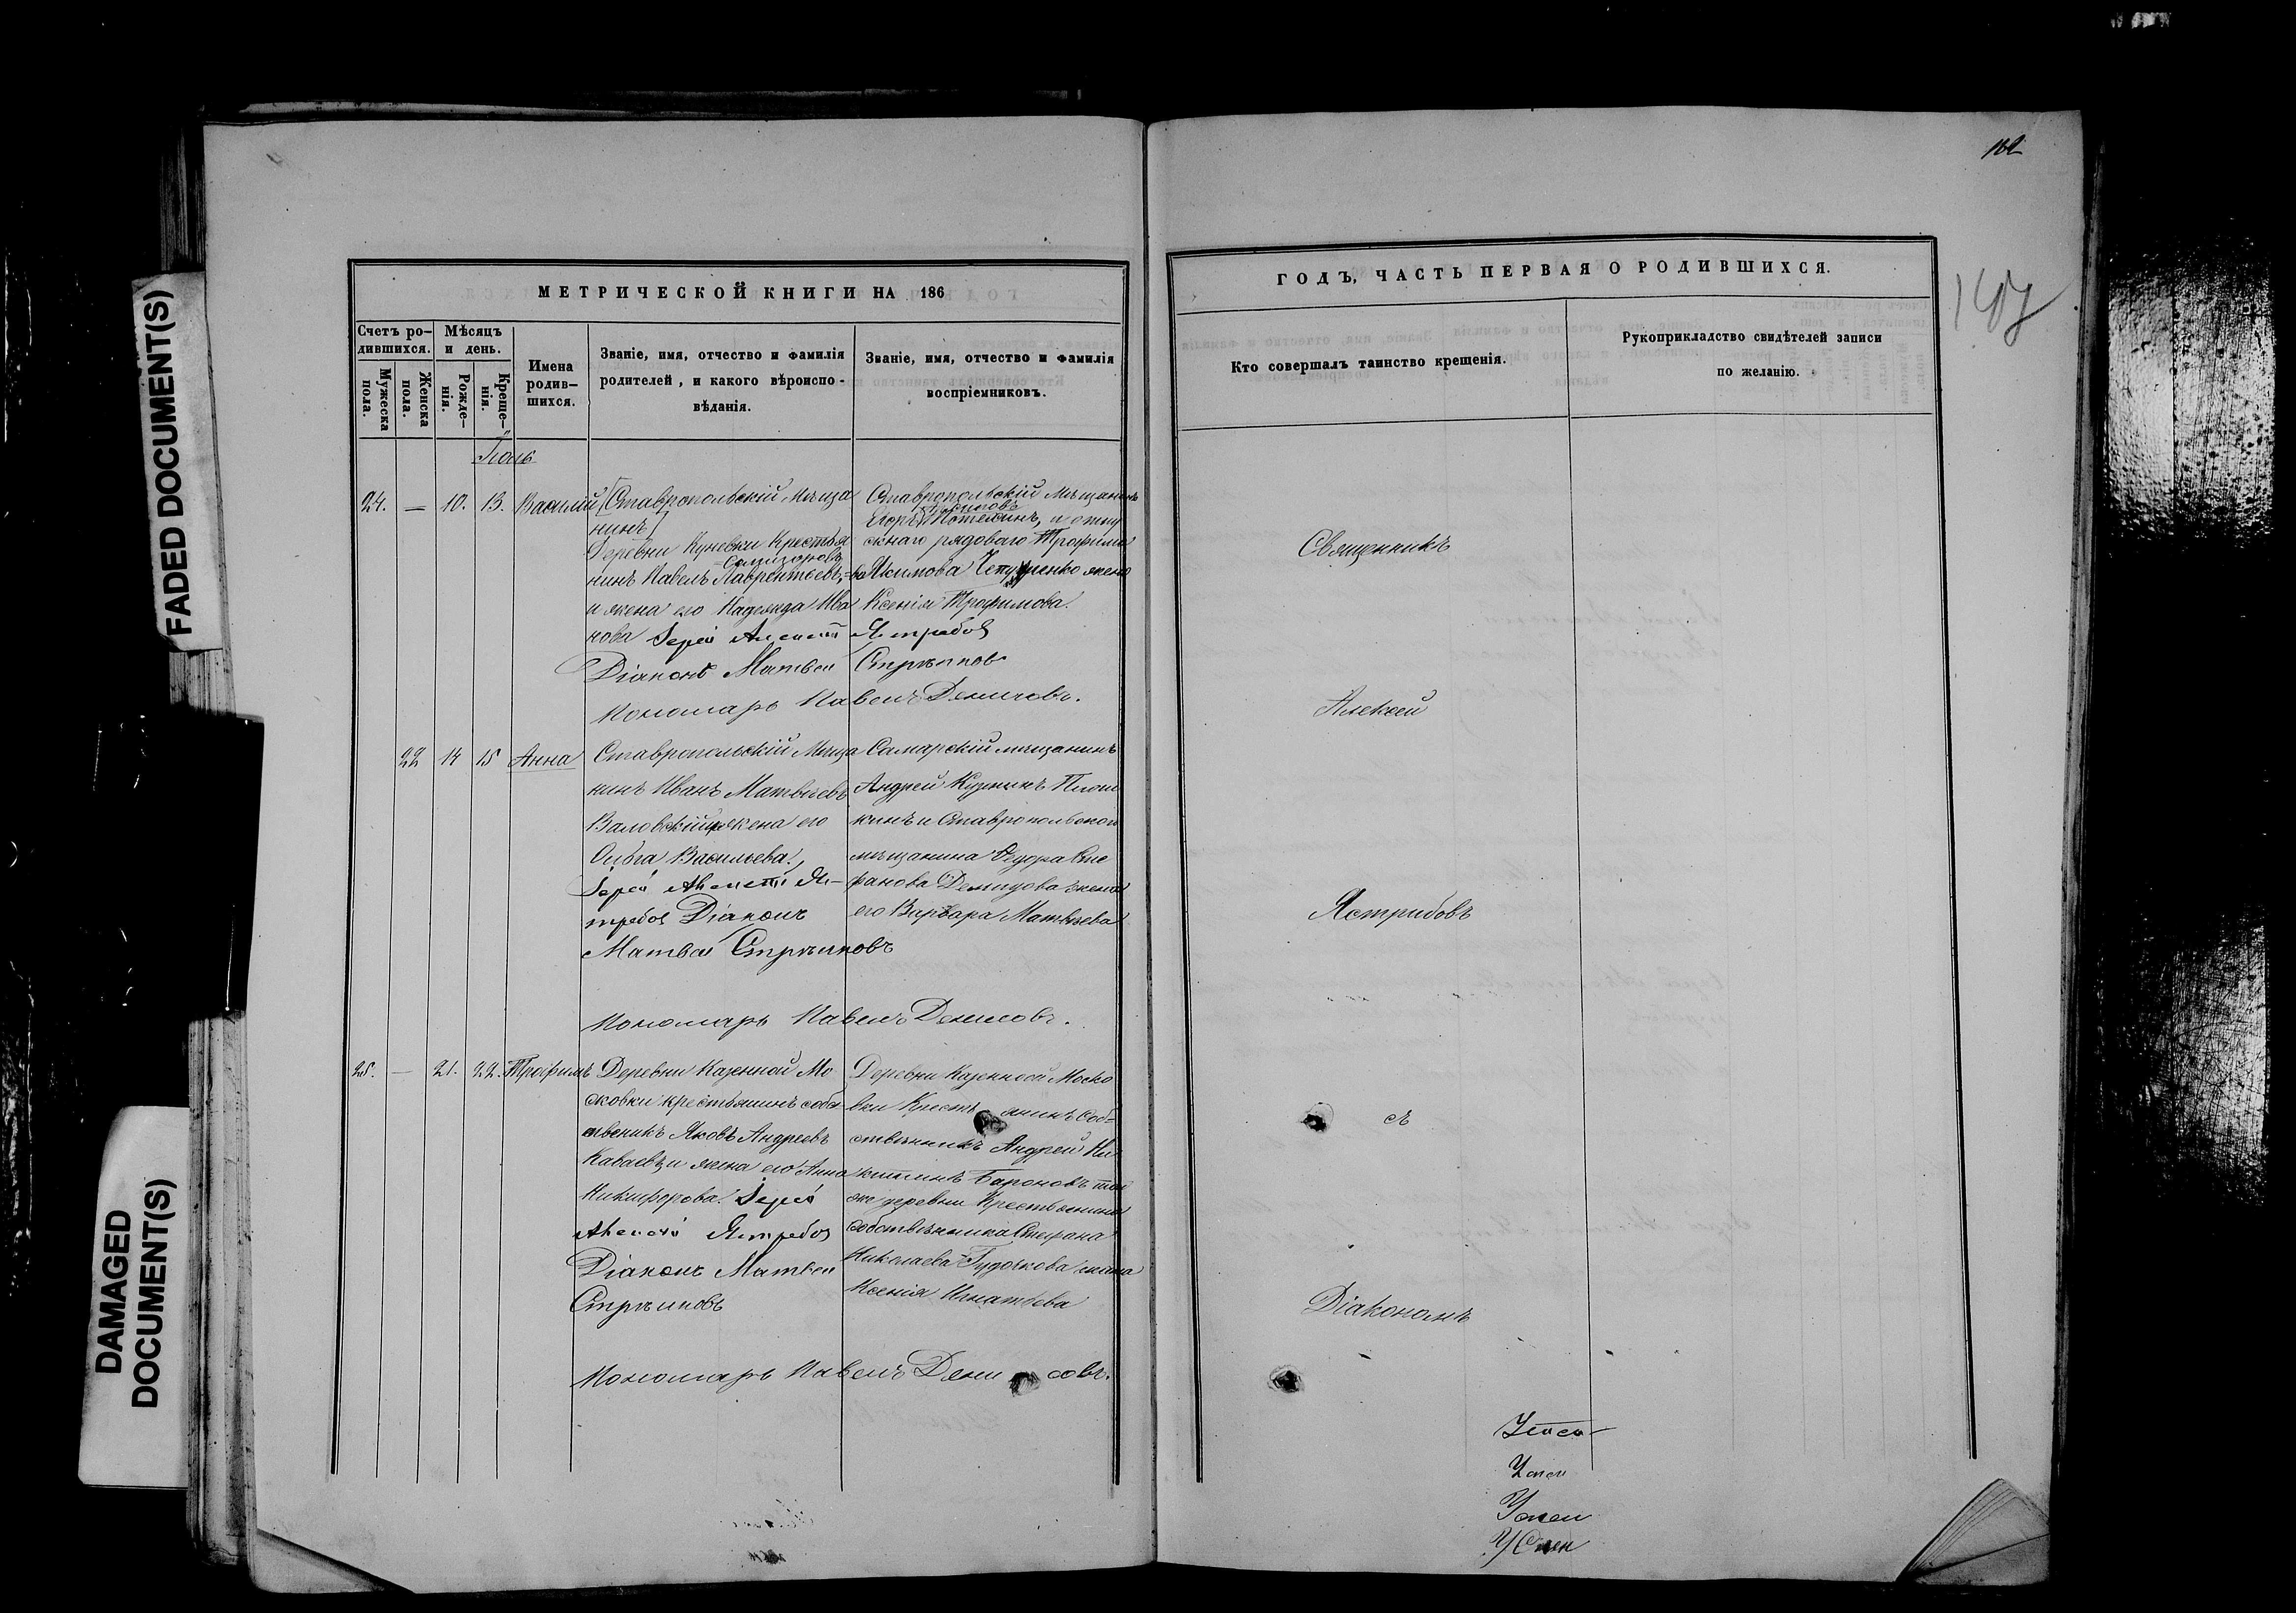 FADED DOCUMENT(S)
DAMAGED
DOCUMENT(S)
МЕТРИЧЕСКОЙ КНИГИ НА 186
Счетъ ро-
дившихся.
Мужеска
пола.
Женска
пола.
Мѣсяцъ
и день.
Рожде-
нія.
Креще-
нія.
Имена
родив-
шихся.
Званіе, имя, отчество и фамилія
родителей, и какого вѣроиспо-
вѣданія.
Званіе, имя, отчество и фамилія
воспріемниковъ.
Іюль
24. — 10. 13. Василій
[Ставропольскій мѣща
нинъ]
Деревни Куневки Крестья
нинъ Павелъ Лаврентьевъ,
и жена его Надежда Ива
нова Іерей Алексій Ястребов
Діаконъ Матвей Стрѣлковъ
Пономарь Павелъ Денисовъ.
Ставропольскій Мѣщанинъ
Егоръ
рядоваго Трофима
Акимова жена
Ксенія Трофимова.
22 14 15 Анна
Ставропольскій Мѣща
нинъ Иванъ Матвѣевъ
Валовскій и жена его
Ольга Васильева.
Іерей Алексій Яс-
требов Діаконъ
Матвей Стрѣлковъ
Самарскій мѣщанинъ
Андрей Кузминъ Плот
кинъ и Ставропольскаго
мѣщанина Ѳедора Сте
фанова Демидова жена
его Варвара Матвѣева
Пономарь Павелъ Денисовъ.
25. — 21. 22. Трофимъ
Деревни Казенной Мо
сковки крестьянинъ соб
ственникъ Яковъ Андреевъ
Каваевъ, и жена его Анна
Никифорова. Іерей
Алексій Ястребов
Діаконъ Матвей
Стрѣлковъ
Деревни Казенной Моско
вки Крестьянинъ Соб-
ственникъ Андрей Ни
китинъ Бароновъ той
же деревни Крестьянина
собственника Стефана
Николаева Гудочкова жена
Ксенія Игнатьева
Пономарь Павелъ Денисовъ.
162
ГОДЪ, ЧАСТЬ ПЕРВАЯ О РОДИВШИХСЯ.
Кто совершалъ таинство крещенія.
Рукоприкладство свидѣтелей записи
по желанію.
Священникъ
Алексей
Ястрибовъ
съ
Діакономъ
Успен